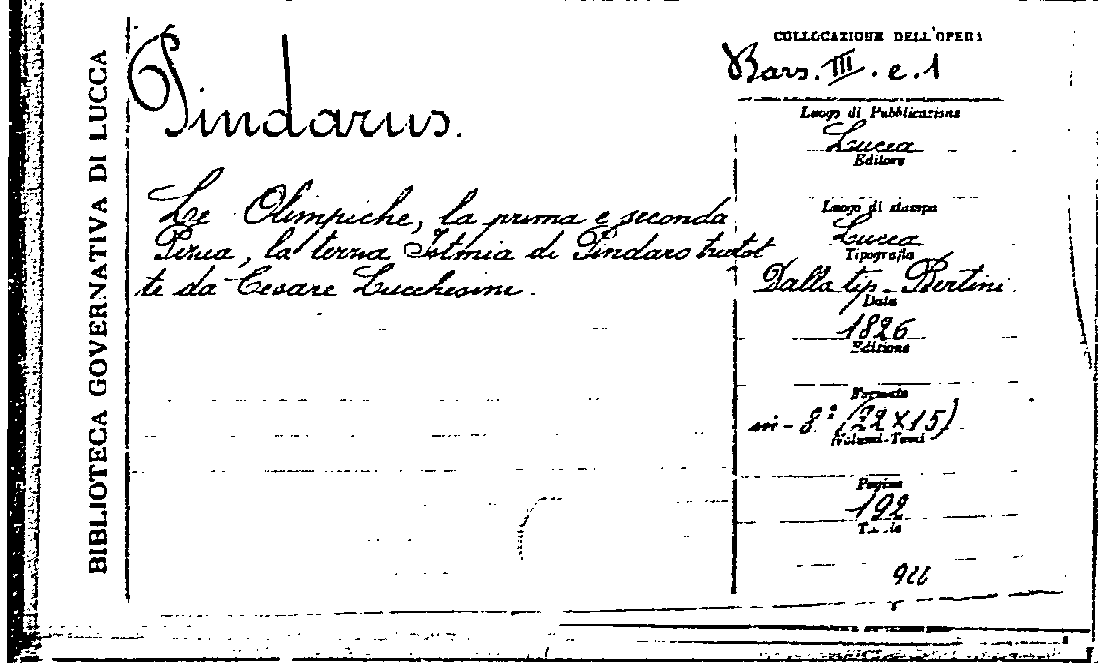 BIBLIOTECA GOVERNATIVA DI LUCCA
Pindarus.
Le Olimpiche, la prima e seconda
Pizia, la terza Istmia di Pindaro tradot
te da Cesare Lucchesini.
COLLOCAZIONE DELL'OPERA
Bars. III. e. 1
Luogo di Pubblicazione
Lucca
Editore
Luogo di stampa
Lucca
Tipografia
Dalla tip. Bertini.
Data
1826
Edizione
Formato
in-8º (22×15)
Volumi-Tomi
Pagine
192
Tavole